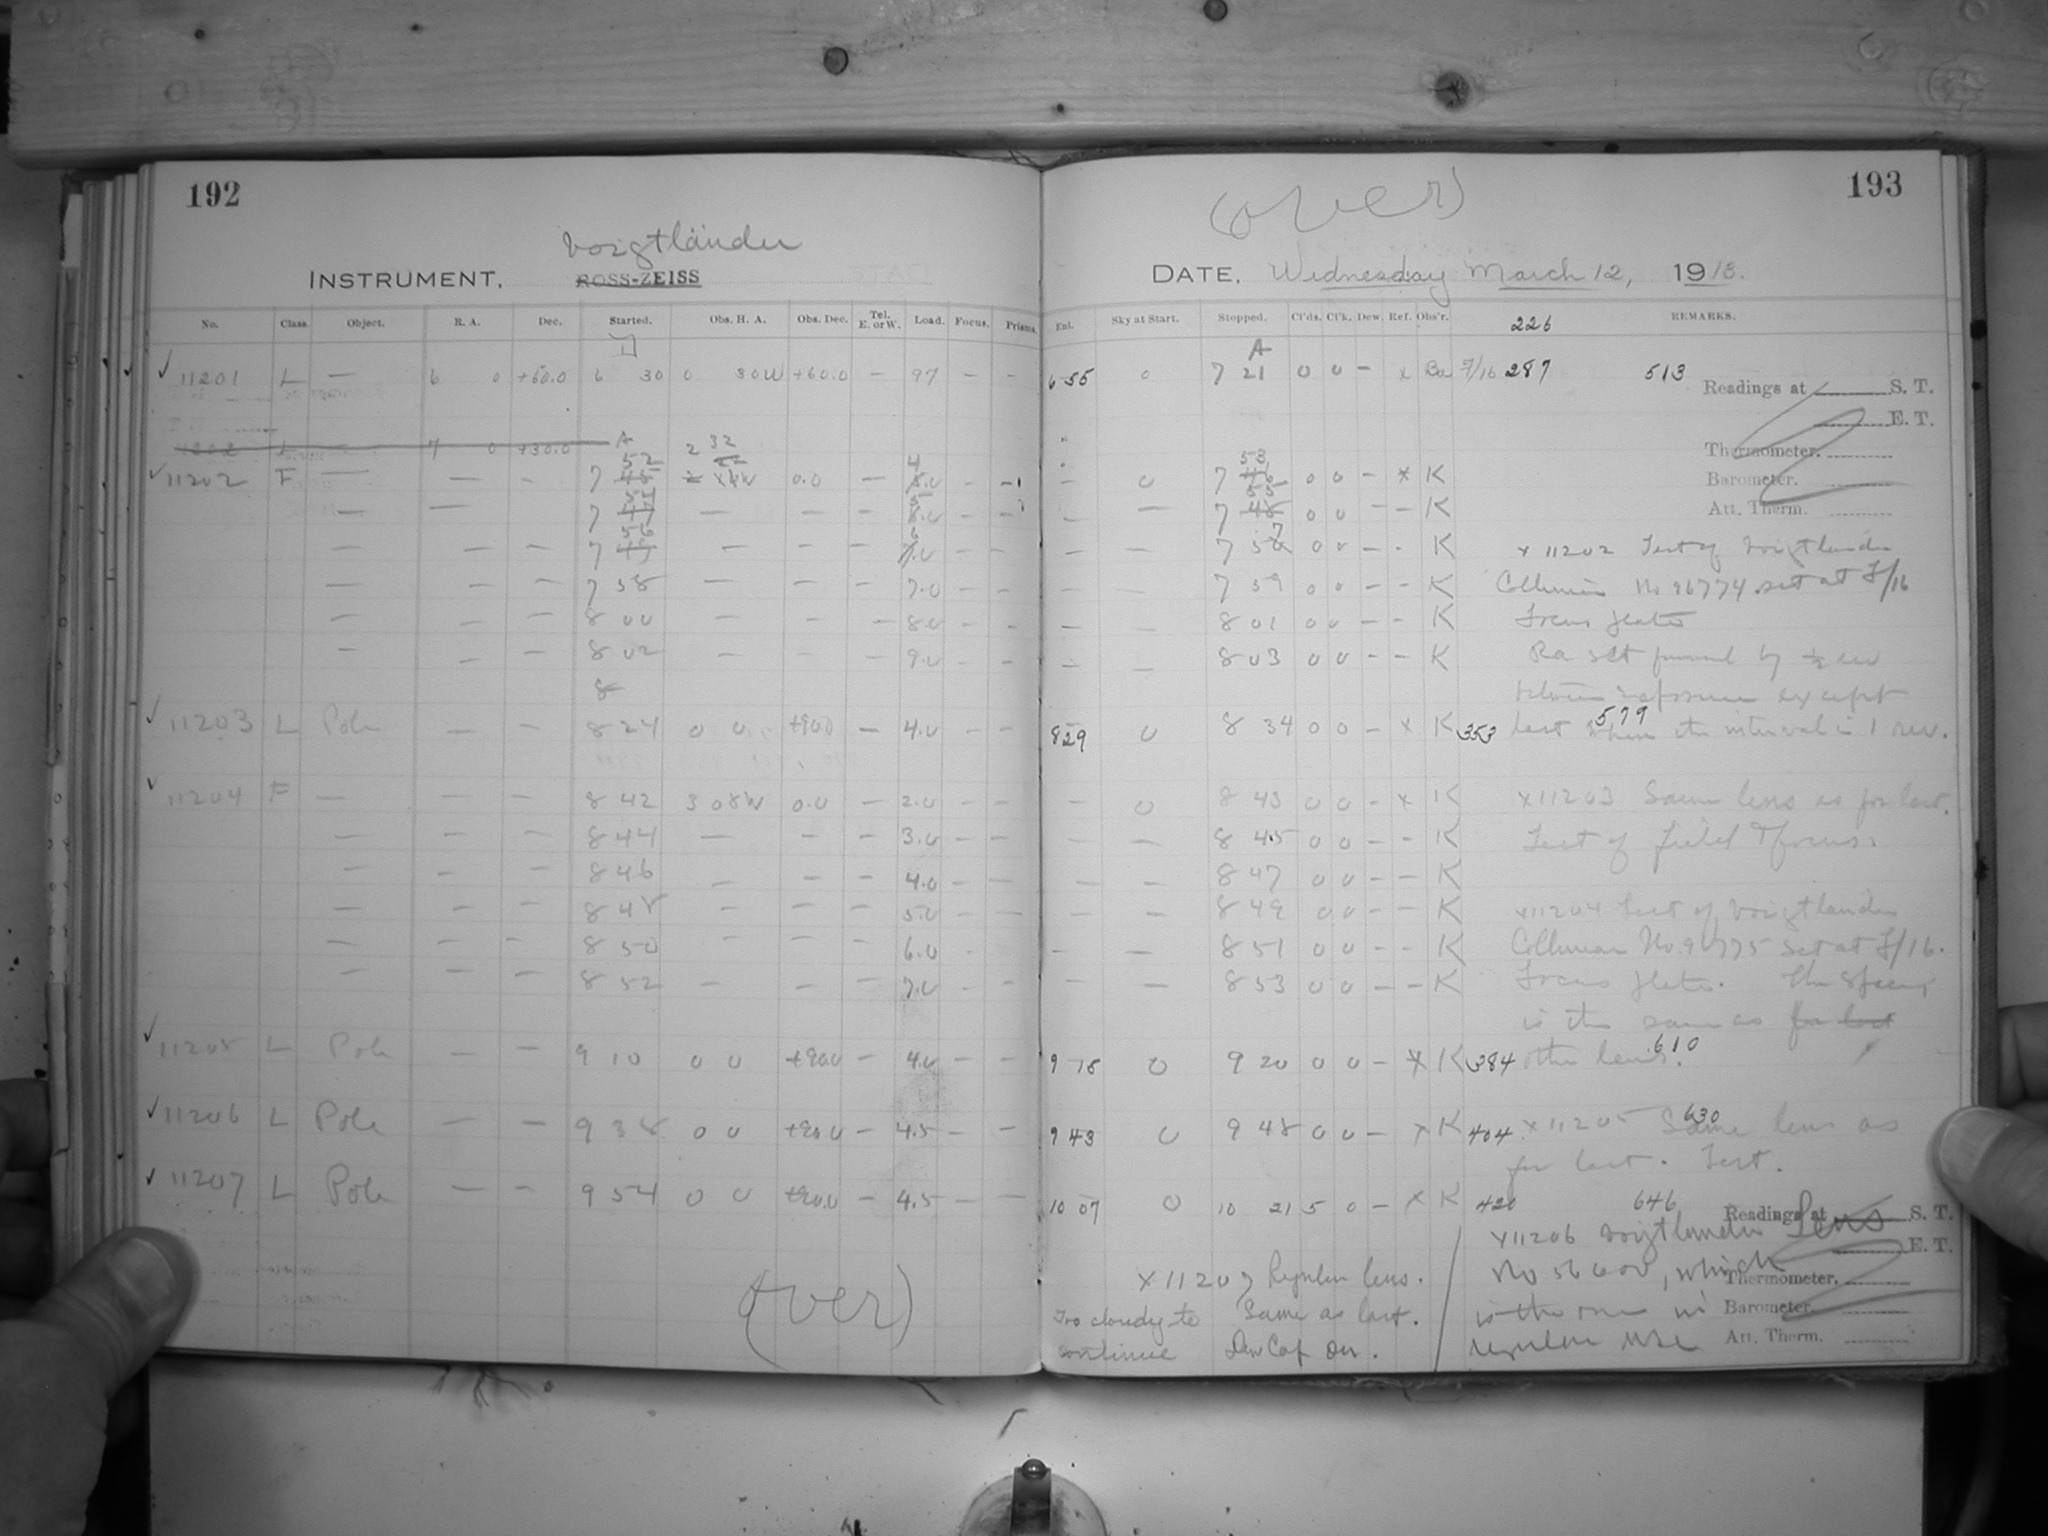 192
Voigtländer
INSTRUMENT, ROSS-ZEISS
No. Class. Object. R. A. Dec. Started. Obs. H. A. Obs. Dec. Tel. E. or W. Load. Focus. Prisms.
11201 L — 6 0 +60.0 6 30 0 30W +60.0 — 97 — —
11202 L — 7 0 +30.0
A 52 2 32 4
11202 F — — — 7 0.0 — — —
7 — — — —
56
7 — — — —
— — — 7 58 — — — 7.0 — —
— — — 8 00 — — — 8.0 — —
— — — 8 02 — — — 9.0 — —
8
11203 L Pole — — 8 24 0 0 +90.0 — 4.0 — —
11204 F — — — 8 42 3 08W 0.0 — 2.0 — —
— — — 8 44 — — — 3.0 — —
— — — 8 46 — — — 4.0 — —
— — — 8 48 — — — 5.0 — —
— — — 8 50 — — — 6.0 —
— — — 8 52 — — — 7.0 — —
11205 L Pole — — 9 10 0 0 +90.0 — 4.0 — —
11206 L Pole — — 9 38 0 0 +90.0 — 4.5 — —
11207 L Pole — — 9 54 0 0 +90.0 — 4.5 — —
(over)
193
(over)
DATE, Wednesday March 12, 1913.
Enl. Sky at Start. Stopped. Cl'ds. Cl'k. Dew. Ref. Obs'r. 226 REMARKS.
A
6 55 0 7 21 0 0 — x Ba 7/16 287 513
Readings at S. T.
E. T.
Thermometer.
Barometer.
Att. Therm.
53
— 0 7 0 0 — x K
55
— — 7 0 0 — — K
— — 7 0 0 — — K x 11202 Test of Voigtlander
— — 7 59 0 0 — — K Collinear No 96774 set at F/16
— — 8 01 0 0 — — K Focus plate
— — 8 03 0 0 — — K Ra set by ½ rev
between exposures except
829 0 8 34 0 0 — x K 353 last 579 when the interval is 1 rev.
— 0 8 43 0 0 — x K x11203 Same lens as for last.
— — 8 45 0 0 — — K Test of field & focus.
— — 8 47 0 0 — — K
— — 8 49 0 0 — — K x11204 Test of Voigtlander
— — 8 51 0 0 — — K Collinear No. 96775 set at F/16.
— — 8 53 0 0 — — K Focus plate. The spacing
is the same as for last
9 15 0 9 20 0 0 — x K 384 other lens. 610
9 43 0 9 48 0 0 — x K 404 x11205 630 Same lens as
for last. Test.
10 07 0 10 21 5 0 — x K 420 646
Readings at S. T.
E. T.
Thermometer.
Barometer.
Att. Therm.
x11206 Voigtlander Lens
No 56600, which
is the one in
regular use
x 11207 Regular lens.
Same as last.
Dew Cap on.
Too cloudy to
continue